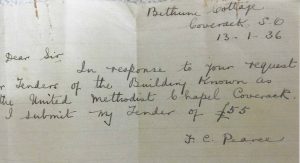 Bethune Cottage
Coverack. S.O
13-1-36
Dear Sir.
In response to your request
r Tenders of the Building Known as
the United Methodist Chapel Coverack
I submit my Tender of £55
F. C. Pearce